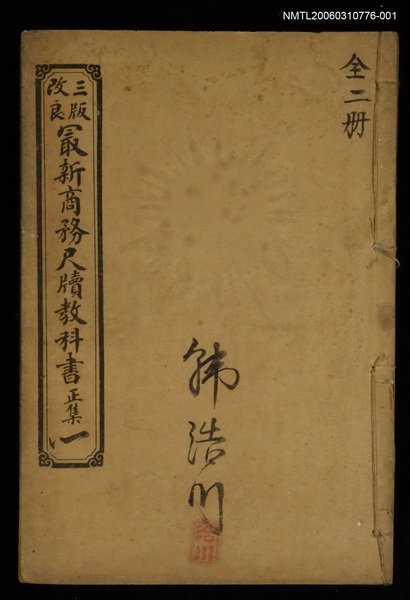 NMTL20060310776-001
全二冊
三版
改良
最新商務尺牘教科書
正集
一
浩川
浩川